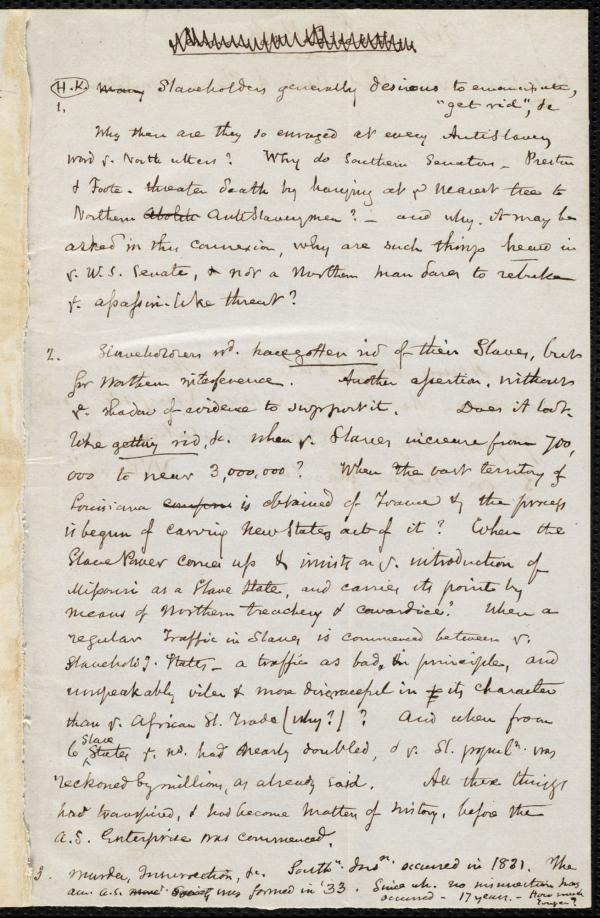 H.K. Many Slaveholders generally desirous to emancipate,
1. "get rid", &c
Why then are they so enraged at every AntiSlavery
word ye. North utters? Why do Southern Senators – Preston
& Foote – threaten death by hanging at ye nearest tree to
Northern Abolit AntiSlaverymen? – and why, it may be
asked in this connexion, why are such things heard in
ye. U.S. Senate, & not a Northern man dares to rebuke
ye. assassin-like threat?
2. Slaveholders wd. have gotten rid of their Slaves, but
for Northern interference. Another assertion, without
ye. shadow of evidence to support it. Does it look
like getting rid, &c. when ye. Slaves increase from 700,
000 to near 3,000,000? When the vast territory of
Louisiana is obtained of France & the process
is begun of carving New States out of it? When the
Slave Power comes up & insists on ye. introduction of
Missouri as a Slave State, and carries its points by
means of Northern treachery & cowardice? When a
regular Traffic in Slaves is commenced between ye.
Slavehold'g. States – a traffic as bad, in principle, and
unspeakably viler & more disgraceful in its character
than ye. African Sl. Trade (why?)? And when from
6 Slave States ye. no. had nearly doubled, & ye. Sl. populn. was
reckoned by millions, as already said. All these things
had transpired, & had become matters of history, before the
A.S. Enterprise was commenced.
3. Murder, Insurrection, &c. Southn. Insn. occurred in 1831. The
Am. A.S. Society was formed in '33. Since wh. no insurrection has
occurred – 17 years. – How much
longer?